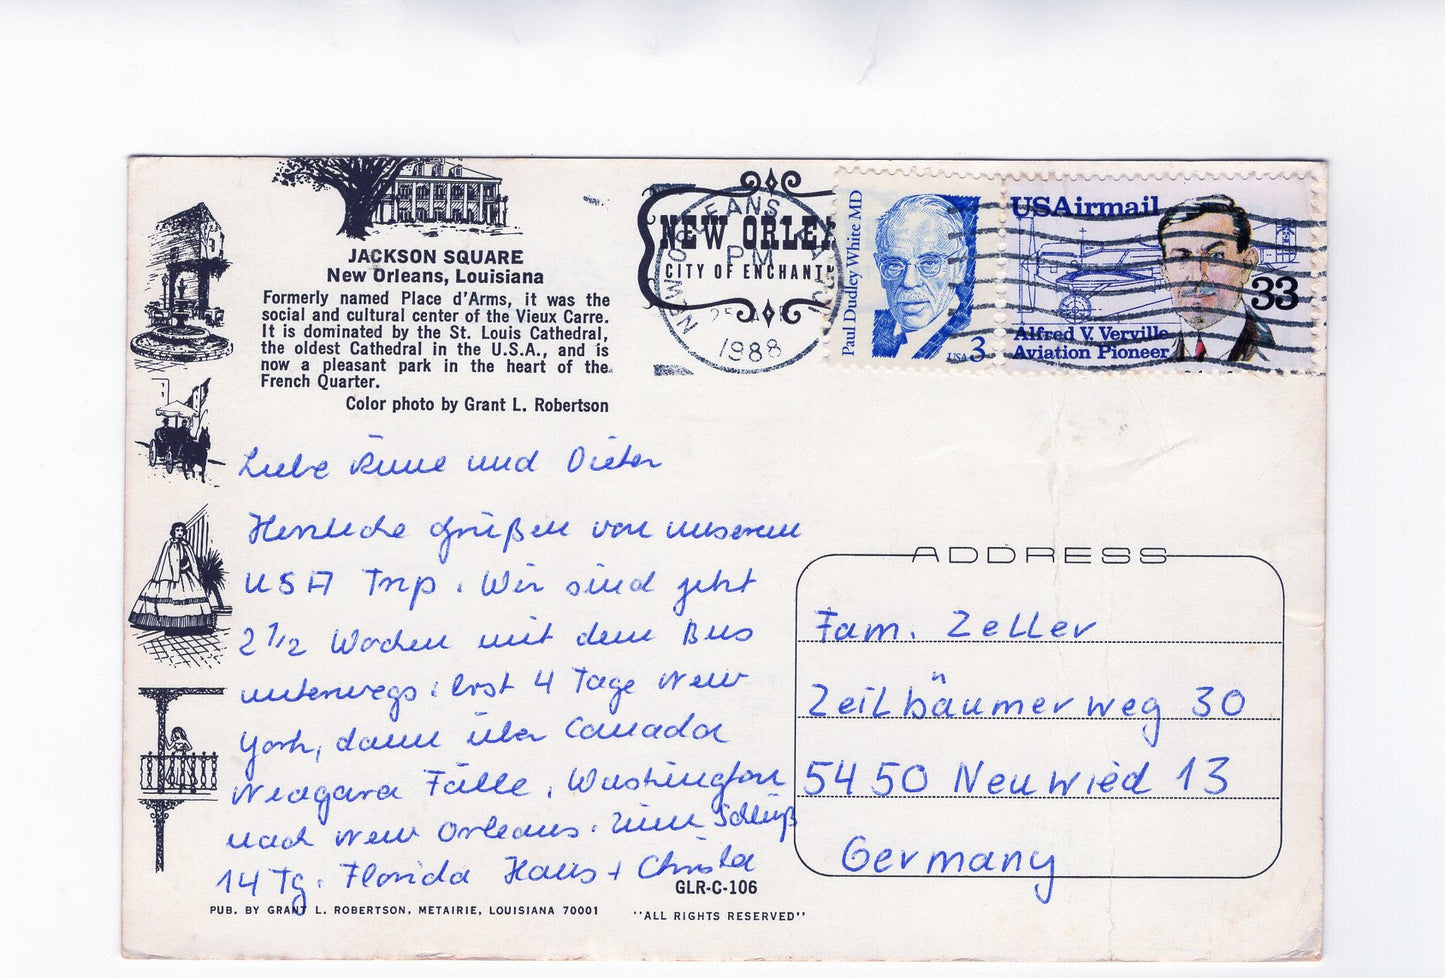 JACKSON SQUARE
New Orleans, Louisiana
Formerly named Place d'Arms, it was the
social and cultural center of the Vieux Carre.
It is dominated by the St. Louis Cathedral,
the oldest Cathedral in the U.S.A., and is
now a pleasant park in the heart of the
French Quarter.
Color photo by Grant L. Robertson
NEW ORLEA
CITY OF ENCHANT
PM
1988
Paul Dudley White MD
USA 3
USAirmail
33
Alfred V. Verville
Aviation Pioneer
Liebe und Dieter
Herzliche Grüßen von unserem
USA Trip. Wir sind jetzt
2 1/2 Wochen mit dem Bus
unterwegs. Erst 4 Tage New
York, dann über Canada
Niagara Fälle, Washington
nach New Orleans. Zum Schluß
14 Tg. Florida Hans + Christa
ADDRESS
Fam. Zeller
Zeilbäumerweg 30
5450 Neuwied 13
Germany
GLR-C-106
PUB. BY GRANT L. ROBERTSON, METAIRIE, LOUISIANA 70001 "ALL RIGHTS RESERVED"